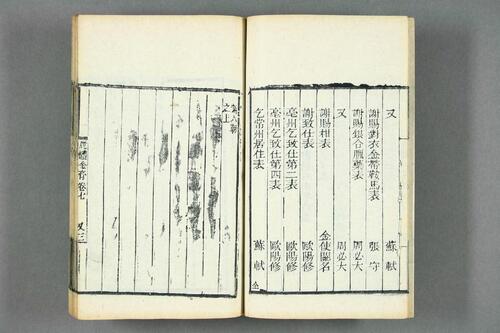 又 蘇軾
謝賜對衣金帶鞍馬表 張守
謝賜銀合臘藥表 周必大
又 周必大
謝賜柑表 金使闕名
謝致仕表 歐陽修
亳州乞致仕第二表 歐陽修
亳州乞致仕第四表 歐陽修
乞常州居住表 蘇軾
之上
卷七
又三